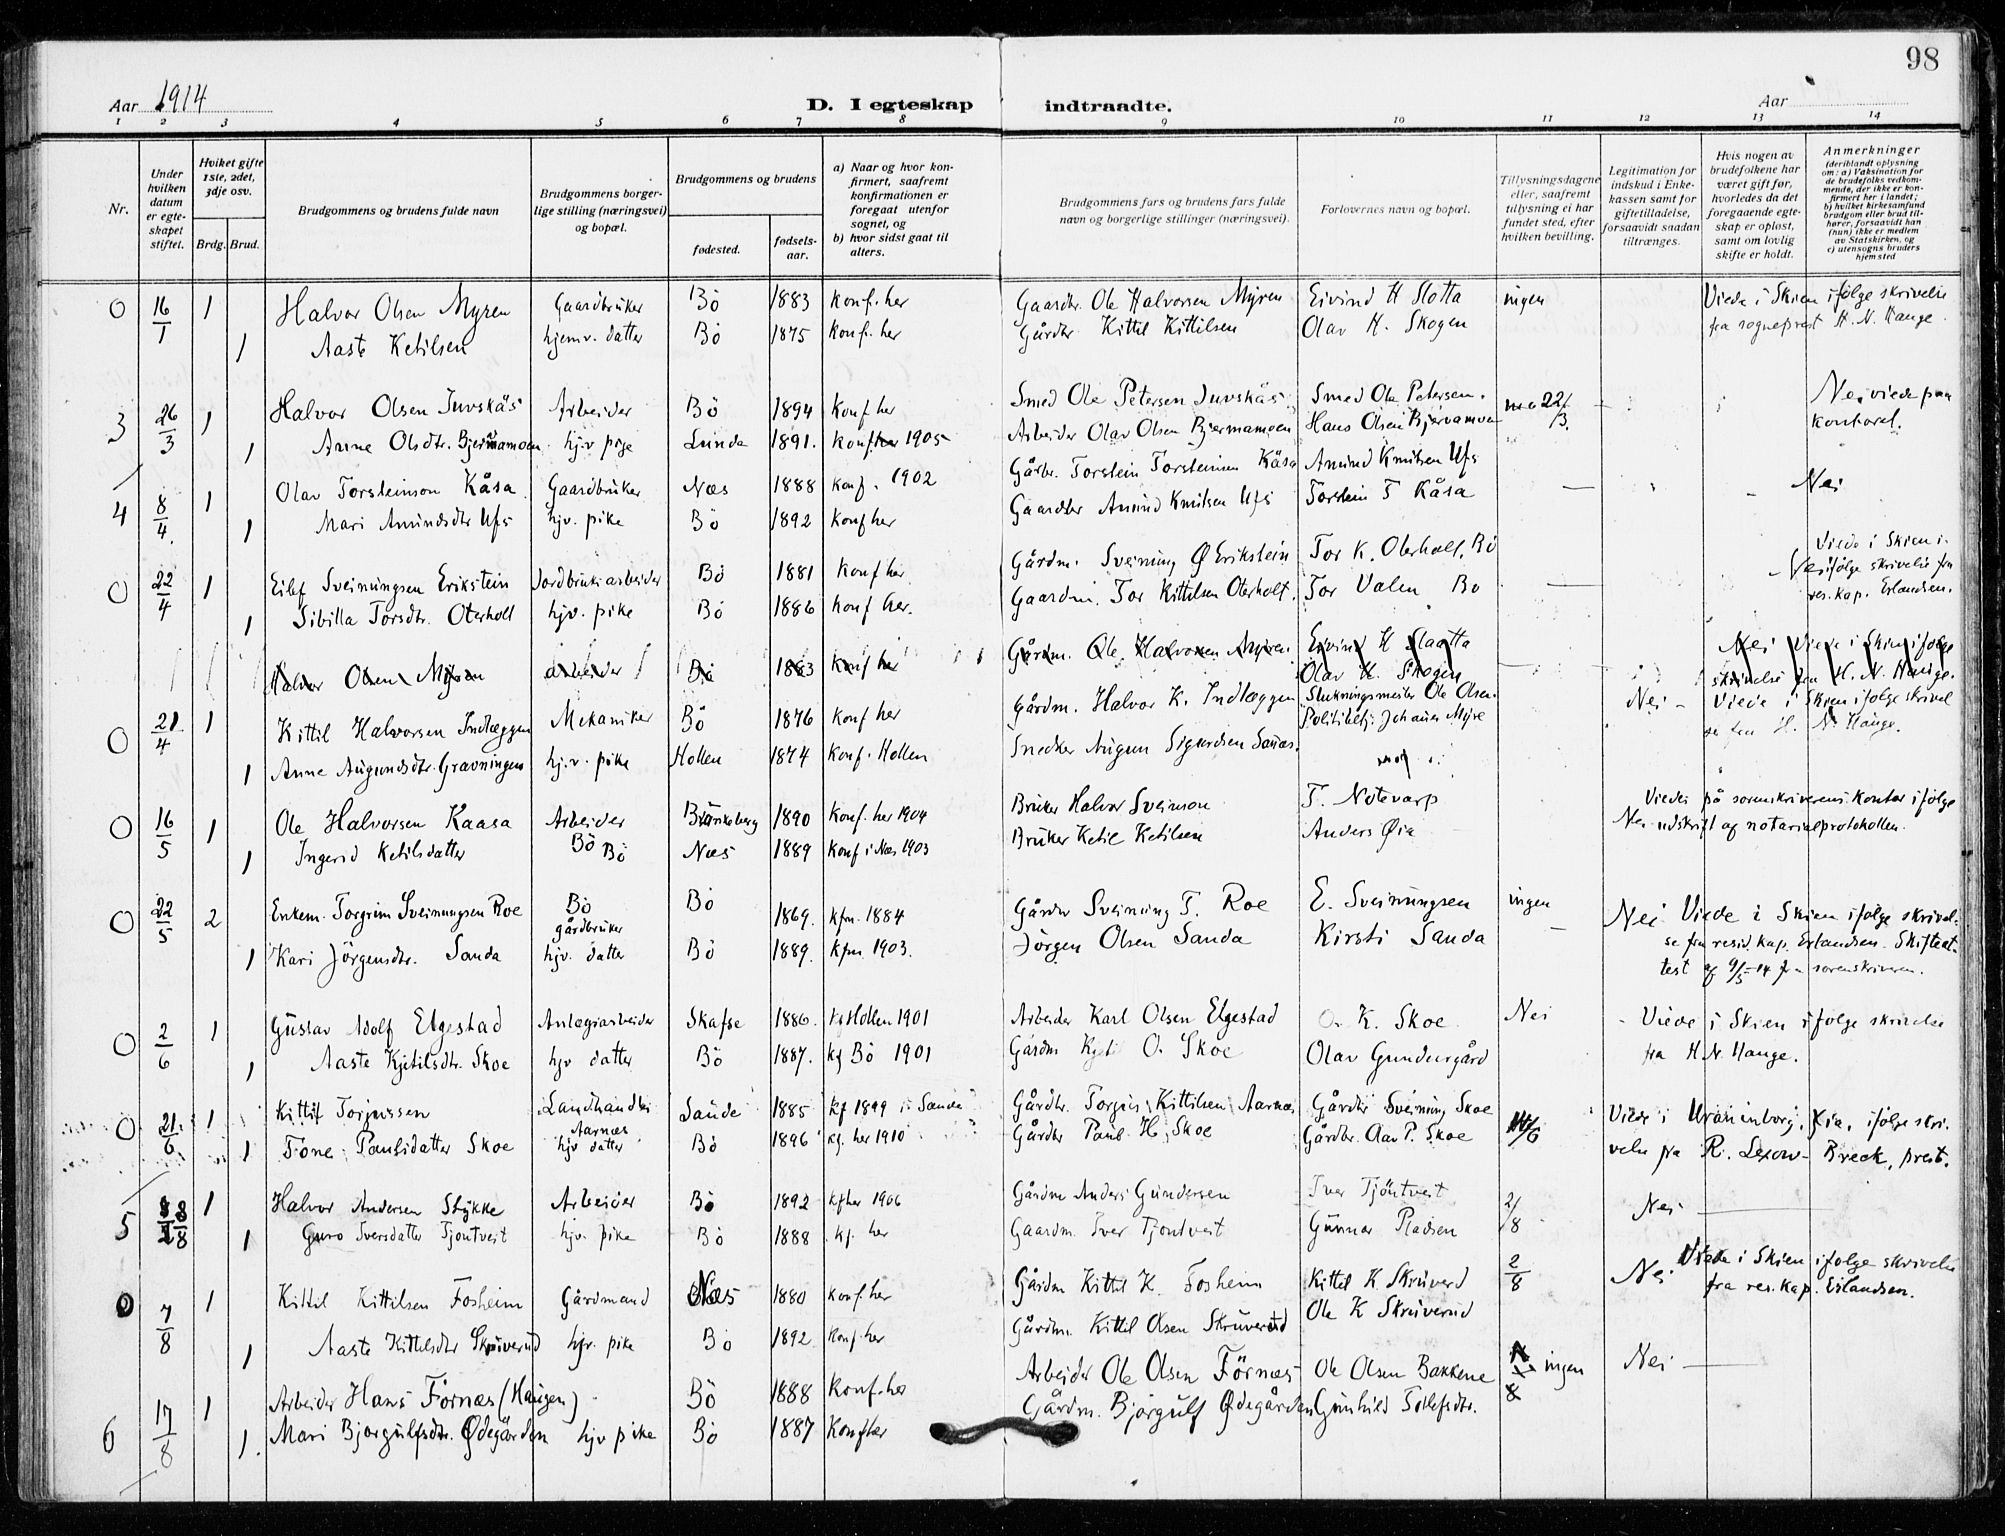 98
Aar 1914
D. I egteskap indtraadte.
Aar
1 2 3 4 5 6 7 8 9 10 11 12 13 14
Nr.
Under hvilken datum er egteskapet stiftet.
Hviket gifte 1ste, 2det, 3dje osv.
Brdg. Brud.
Brudgommens og brudens fulde navn
Brudgommens borgerlige stilling (næringsvei) og bopæl.
Brudgommens og brudens
fødested.
fødselsaar.
a) Naar og hvor konfirmert, saafremt konfirmationen er foregaat utenfor sognet, og
b) hvor sidst gaat til alters.
Brudgommens fars og brudens fars fulde navn og borgerlige stillinger (næringsvei).
Forlovernes navn og bopæl.
Tillysningsdagene eller, saafremt tillysning ei har fundet sted, efter hvilken bevilling.
Legitimation for indskud i Enkekassen samt for giftetilladelse, forsaavidt saadan tiltrænges.
Hvis nogen av brudefolkene har været gift før, hvorledes da det foregaaende egteskap er opløst, samt om lovlig skifte er holdt.
Anmerkninger
(deriblandt oplysning om: a) Vaksination for de brudefolks vedkommende, der ikke er konfirmert her i landet; b) hvilket kirkesamfund brudgom eller brud tilhører, forsaavidt han (hun) ikke er medlem av Statskirken, og c) utensogns bruders hjemsted
0 16/1 1 Halvor Olsen Myren Gaardbruker Bö 1883 Konf. her Gaardbr. Ole Halvorsen Myren Eivind H Slotta ingen Viede i Skien ifølge skrivelse
1 Aaste Ketilsen hjemv. datter Bö 1875 Konf. her Gårdbr. Kittil Kittilsen Olav H. Skogen fra sogneprest H. N. Hauge.
3 26/3 1 Halvor Olsen Juvskås Arbeider Bö 1894 Konf her Smed Ole Petersen Juvskås Smed Ole Petersen. 22/3. Nei viede paa
1 Anne Olsdtr. Bjermamoen hjv pige Lunde 1891. Konf her 1905 Arbeider Olav Olsen Bjermamoen Hans Olsen kontoret.
4 8/4. 1 Olav Torsteinson Kåsa Gaardbruker Næs 1888 konf. 1902 Gårbr. Torstein Torsteinsen Kåsa Amund Knutsen Ufs — Nei
1 Mari Amundsdtr Ufs hjv. pike Bö 1892 Konf her Gaardbr Amund Knutsen Ufs Torstein T Kåsa
0 22/4 1 Eilef Sveinungsen Erikstein Jordbruksarbeider Bö 1881 Konf her Gårdm. Sveinung Ø Erikstein Tor K. Oterholt, Bö — Nei Viede i Skien i-
følge skrivelse fra
1 Sibilla Torsdtr. Oterholt hjv. pike Bö 1886 Konf her. Gaardm. Tor Kittilsen Oterholt. Tor Valen Bö res. kap. Erlandsen.
Halvor Olsen Myren arbeider Bö 1883 Konf her Gårdm. Ole Halvorsen Myren Eivind H Slaatta Nei Viede i Skien ifølge
Olav H. Skogen skrivelse fra H. N. Hauge.
0 21/4 1 Kittil Halvorsen Indlæggen Mekaniker Bö 1876 Konf her Gårdm. Halvor K. Indlæggen Ole Olsen. Nei - Viede i Skien ifølge skrivel
Politibetj. Johannes Myre se fra H. N. Hauge.
1 Anne Augundsdtr. Gravningen hj.v. pike Hollen 1874 Konf. Hollen Snedker Augun Sigurdsen
0 16/5 1 Ole Halvorsen Kaasa Arbeider Brunkeberg 1890 Konf. her 1904 Bruker Halvor Sveinson T. Notevarp Viedes på sorenskriverens kontor ifølge
Bö
1 Ingerid Ketilsdatter Bö Næs 1889 Konf i Næs 1903 Bruker Ketil Ketilsen Anders Øia Nei udskrift af notarialprotokollen.
0 22/5 2 Enkem. Torgrim Sveinungsen Roe Bö gårdbruker Bö 1869. kfm. 1884 Gårdbr Sveinung T. Roe E. Sveinungsen ingen Nei Viede i Skien ifølge skrivel-
se fra resid. kap. Erlandsen. Skifteat-
1 Kari Jörgensdtr. Sanda hjv. datter Bö 1889. kfm. 1903. Jörgen Olsen Sanda Kirsti Sanda — test af 9/5-14 fra sorenskriveren.
0 2/6 1 Gustav Adolf Elgestad Anlægsarbeider Skafse 1886. kf Hollen 1901 Arbeider Karl Olsen Elgestad O. K. Skoe Nei - Viede i Skien ifølge skrivelse
1 Aaste Kjetilsdtr. Skoe hjv datter Bö 1887. kf Bö 1901 Gårdm Kjetil O. Skoe Olav Gundersgård fra H. N. Hauge.
0 21/6 1 Kittil Torjussen Landhandler Aarnæs Saude 1885 kf 1899 i Saude Gårdbr. Torgus Kittilsen Aarnæs Gårdbr Sveinung Skoe 14/6 Viede i Uranienborg, Kra, ifølge skri-
1 Tone Paulsdatter Skoe hjv datter Bö 1896 kf. her 1910 Gårdbr Paul H. Skoe Gårdbr. Aav P. Skoe velse fra R. Lexow- Breck, prest.
5 8/8 1 Halvor Andersen Stykke Arbeider Bö 1892 kf her 1906 Gårdm Anders Gundersen Iver Tjöntveit 2/8 Nei —
1 Guro Iversdatter Tjontveit hjv. pike Bö 1888 kf. her Gaardm. Iver Tjontveit Gunnar Pladsen
0 7/8 1 Kittil Kittilsen Fosheim Gårdmand Næs 1880 konf. her Gårdm Kittil K. Fosheim Kittil K Skruverd 2/8 Nei Viede i Skien ifølge skrivelse
fra res. kap. Erlandsen.
1 Aaste Kittilsdtr Skruverud hjv. pike Bö 1892. Konf. her Gårdm. Kittil Olsen Skruverud Ole K Skruverud
6 17/8 1 Arbeider Hans Förnæs (Haugen) Bö 1888 Konf. her Arbeider Ole Olsen Förnæs Ole Olsen Bakkene ingen Nei —
1. Mari Bjorgulfsdtr. Ødegården hjv pike Bö 1887 Konf her Gårdm. Bjorgulf Ødegården Gunhild Tollefsdtr.